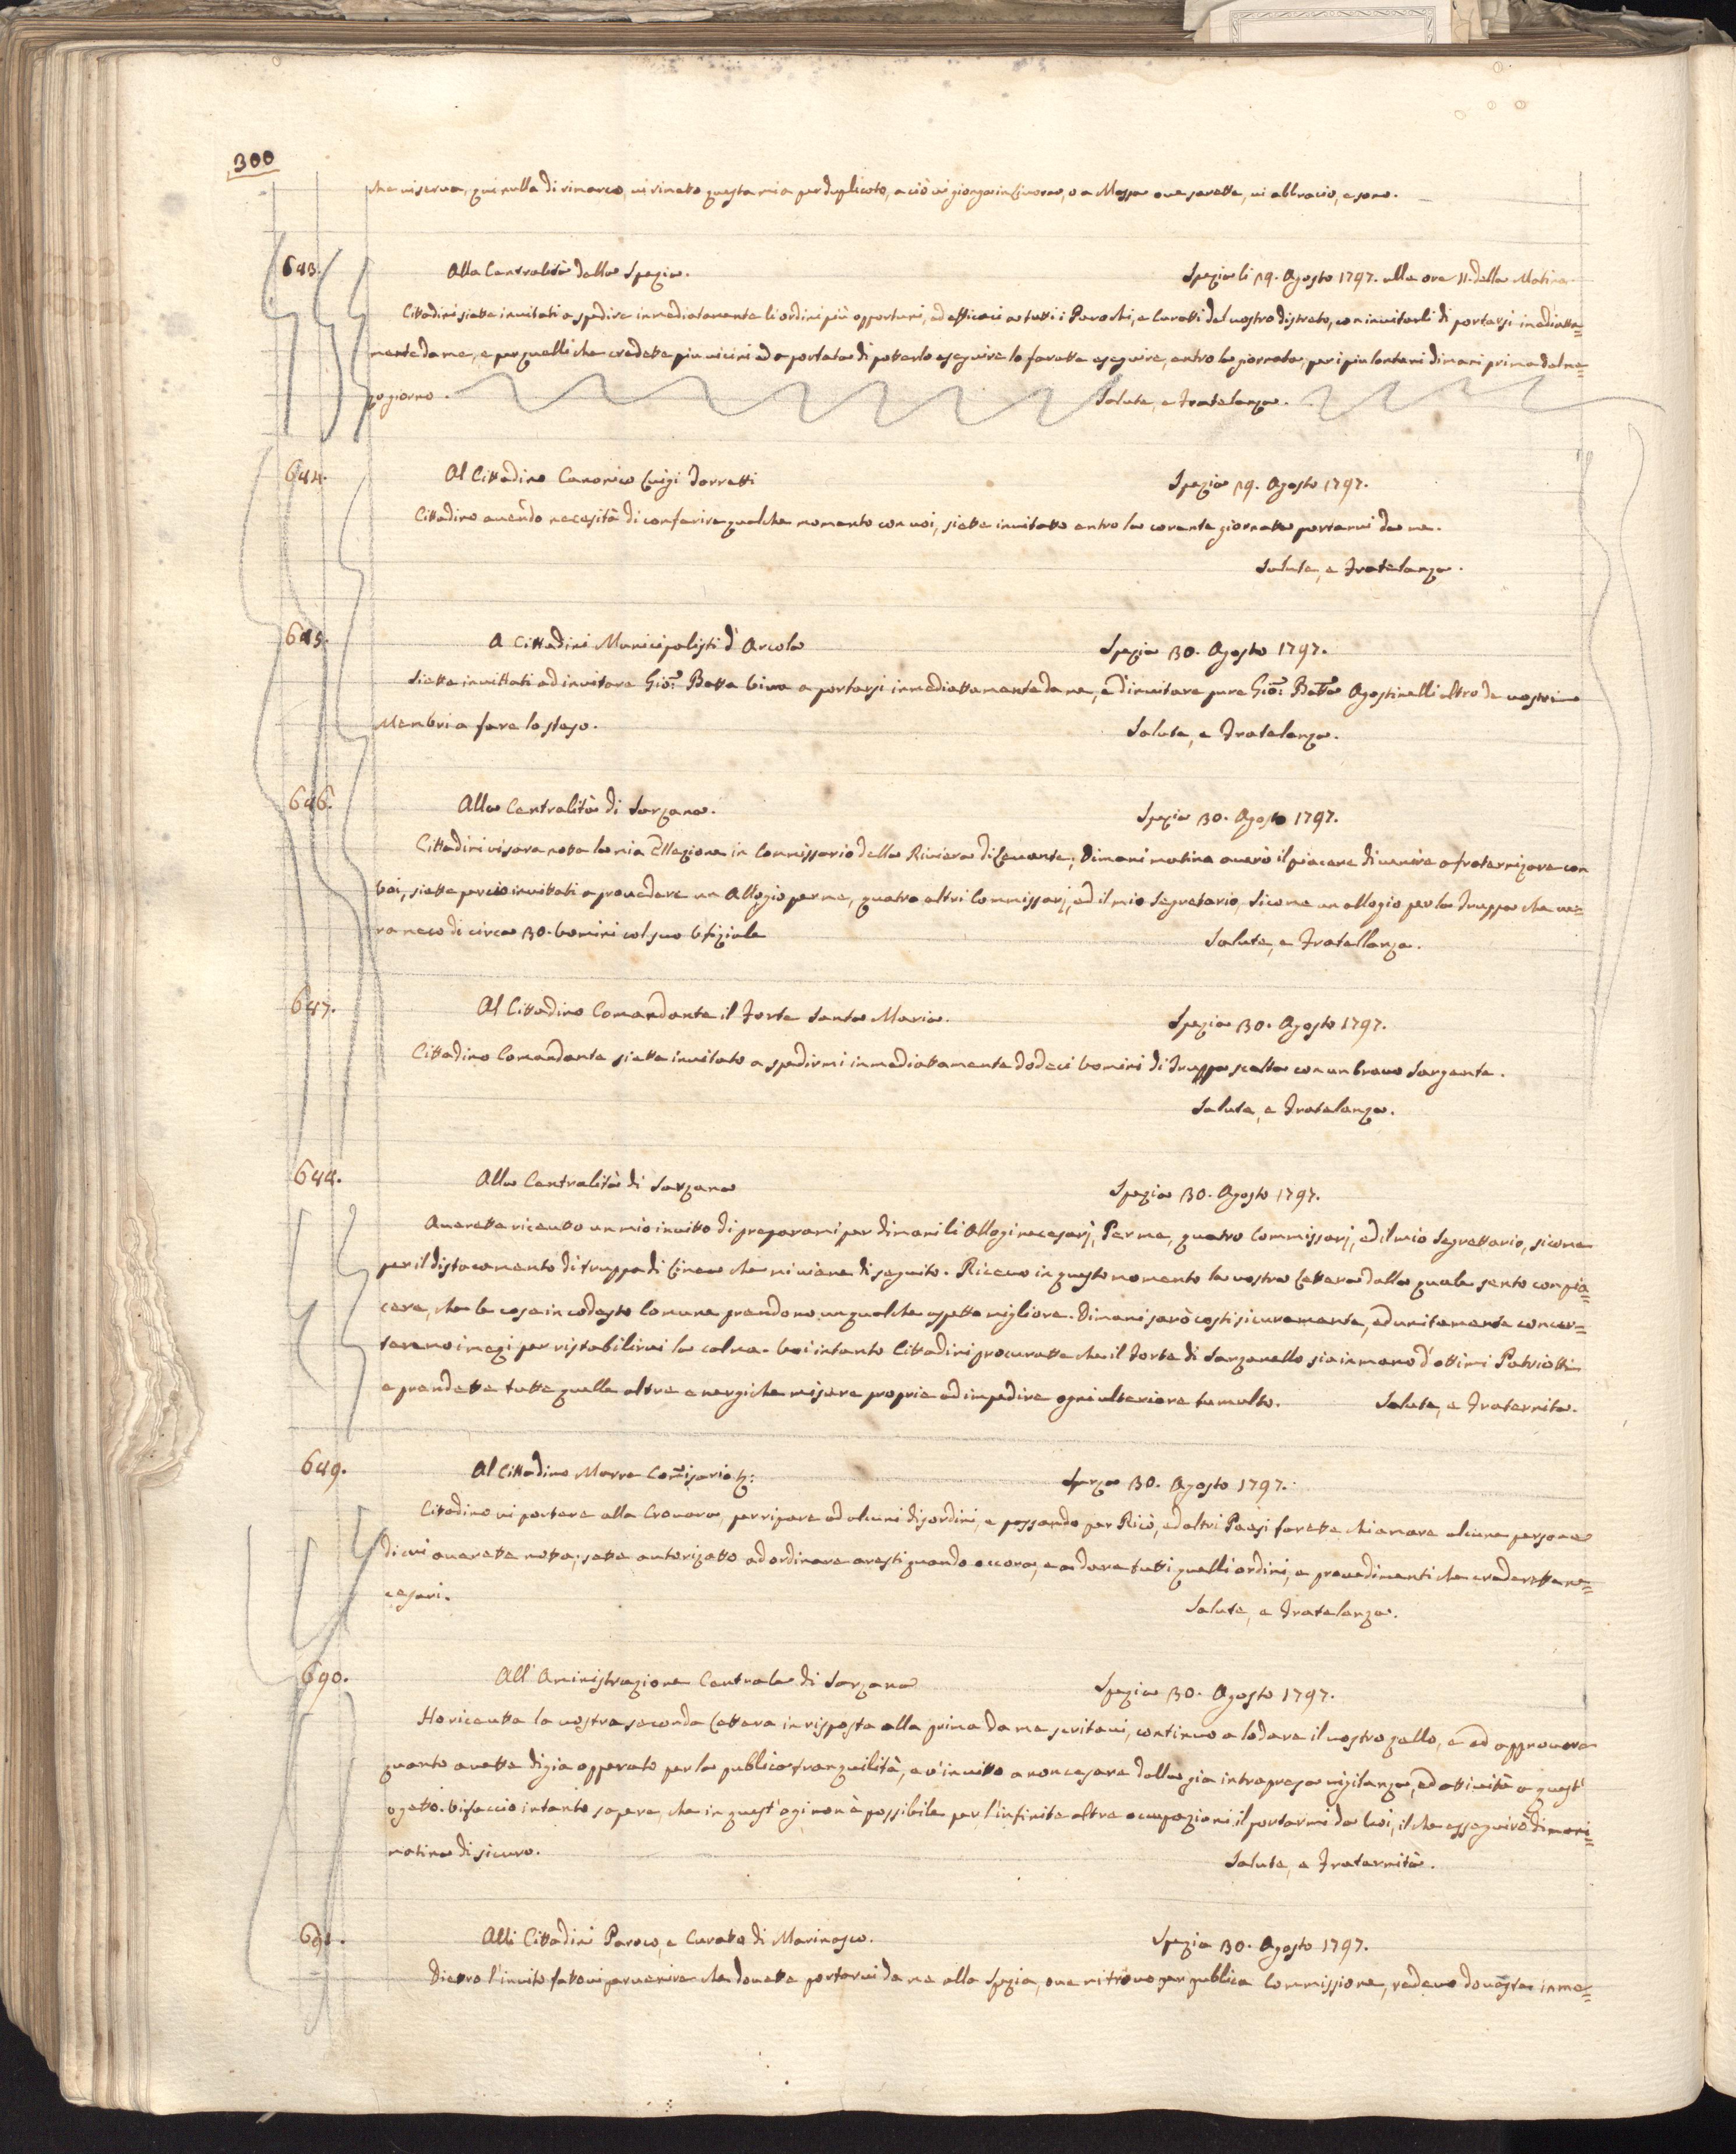 300
che viserva, qui nulla di rimarco, vi rimeto questa mia per duplicato, aciò vi gionga in Livorno, o a Massa ove sarette, vi abbracio, e sono.
643. Alla Centralità della Spezia. Spezia li 29. Agosto 1797. alle ore 11. della Matina.
Cittadini siette invitati a spedire inmediatamente li ordini più opportuni, ed efficaci a tutti i Parochi, e Curatti del vostro distreto, con invitarli di portarsi inediatta=
mente da me, e per quelli che credette piu vicini ed a portata di potterlo eseguire lo farette eseguire, entro la giornata, per i piu lontani dimani prima del me=
zo giorno. Salute, e Fratelanza.
644. Al Cittadino Canonico Luigi Torretti Spezia 29. Agosto 1797.
Cittadino avendo necesità di conferire qualche momento con voi, siette invitatto entro la corente giornatta portarvi da me.
Salute, e Fratelanza.
645. A Cittadini Municipalisti d'Arcola Spezia 30. Agosto 1797.
Siette invittati ad invitare Gio: Batta a portarsi inmediattamente da me, e d'invitare pure Gio: Batta Agostinelli altro de vostri
Membri a fare lo steso. Salute, e Fratelanza.
646. Alla Centralità di Sarzana. Spezia 30. Agosto 1797.
Cittadini vi sara nota la mia Ellezione in Commissario della Riviera di Levante; Dimani matina averò il piacere di venire a fraternizare con
Voi, siette perciò invittati a provedere un Allogio per me, quatro altri Commissarj, ed il mio Segretario, sicome un allogio per la Truppa che ve=
ra meco di circa 30. Uomini col suo Ufiziale Salute, e Fratellanza.
647. Al Cittadino Comandante il Forte Santa Maria. Spezia 30. Agosto 1797.
Cittadino Comandante siette invitato a spedirmi inmediattamente dodeci Uomini di Truppa scelta con un bravo Sargente.
Salute, e Fratelanza.
648. Alla Centralità di Sarzana Spezia 30. Agosto 1797.
Averette riceutto un mio invitto di prepararmi per dimani li Allogi necesarj, Per me, quatro Commissarj, ed il mio Segrettario, sicome
per il distacamento di truppa di Linea che mi viene di seguito. Ricevo in questo momento la vostra Lettera dalla quale sento con pia=
cere, che le cose in codesto Comune prendono un qualche aspetto migliore. Dimani sarò costi sicuramente, ed unitamente concer=
taremo i mezi per ristabilirvi la calma. Voi intanto Cittadini procuratte che il Forte di Sarzanello sia in mano d'ottimi Patriotti
e prendette tutte quelle altre energiche misure proprie ad impedire ogni ulteriore tumulto. Salute, e Fraternita.
649. Al Cittadino Marre Comisario Spezia 30. Agosto 1797.
Cittadino vi portere alla Crovara, per ripare ad alcuni disordini, e passando per Ricò, ed altri Paesi farette chiamare alcune persone
di cui averette nota; sette autorizatto ad ordinare aresti quando occora, e a dare tutti quelli ordini, e provedimenti che crederette ne=
cesari. Salute, e Fratelanza.
690. All'Aministrazione Centrale di Sarzana Spezia 30. Agosto 1797.
Ho riceutta la vostra seconda Lettera in risposta alla prima da me scritavi, continuo a lodare il vostro zello, e ad approvare
quanto avette digia opperato per la publica tranquilità, e v'invitto a non cesare dalla gia intrapresa vigilanza, ed attività a quest'
ogetto. Vi faccio intanto sapere, che in quest'ogi non è possibile per l'infinite altre ocupazioni il portarmi da Voi, il che esseguirò dimani=
matina di sicuro. Salute, e Fraternità.
691. Alli Cittadini Paroco, e Curato di Marinasco. Spezia 30. Agosto 1797.
Dietro l'invito fattovi pervenire che dovette portarvi da me alla Spezia, ove mi trovo per publica Commissione, inme=